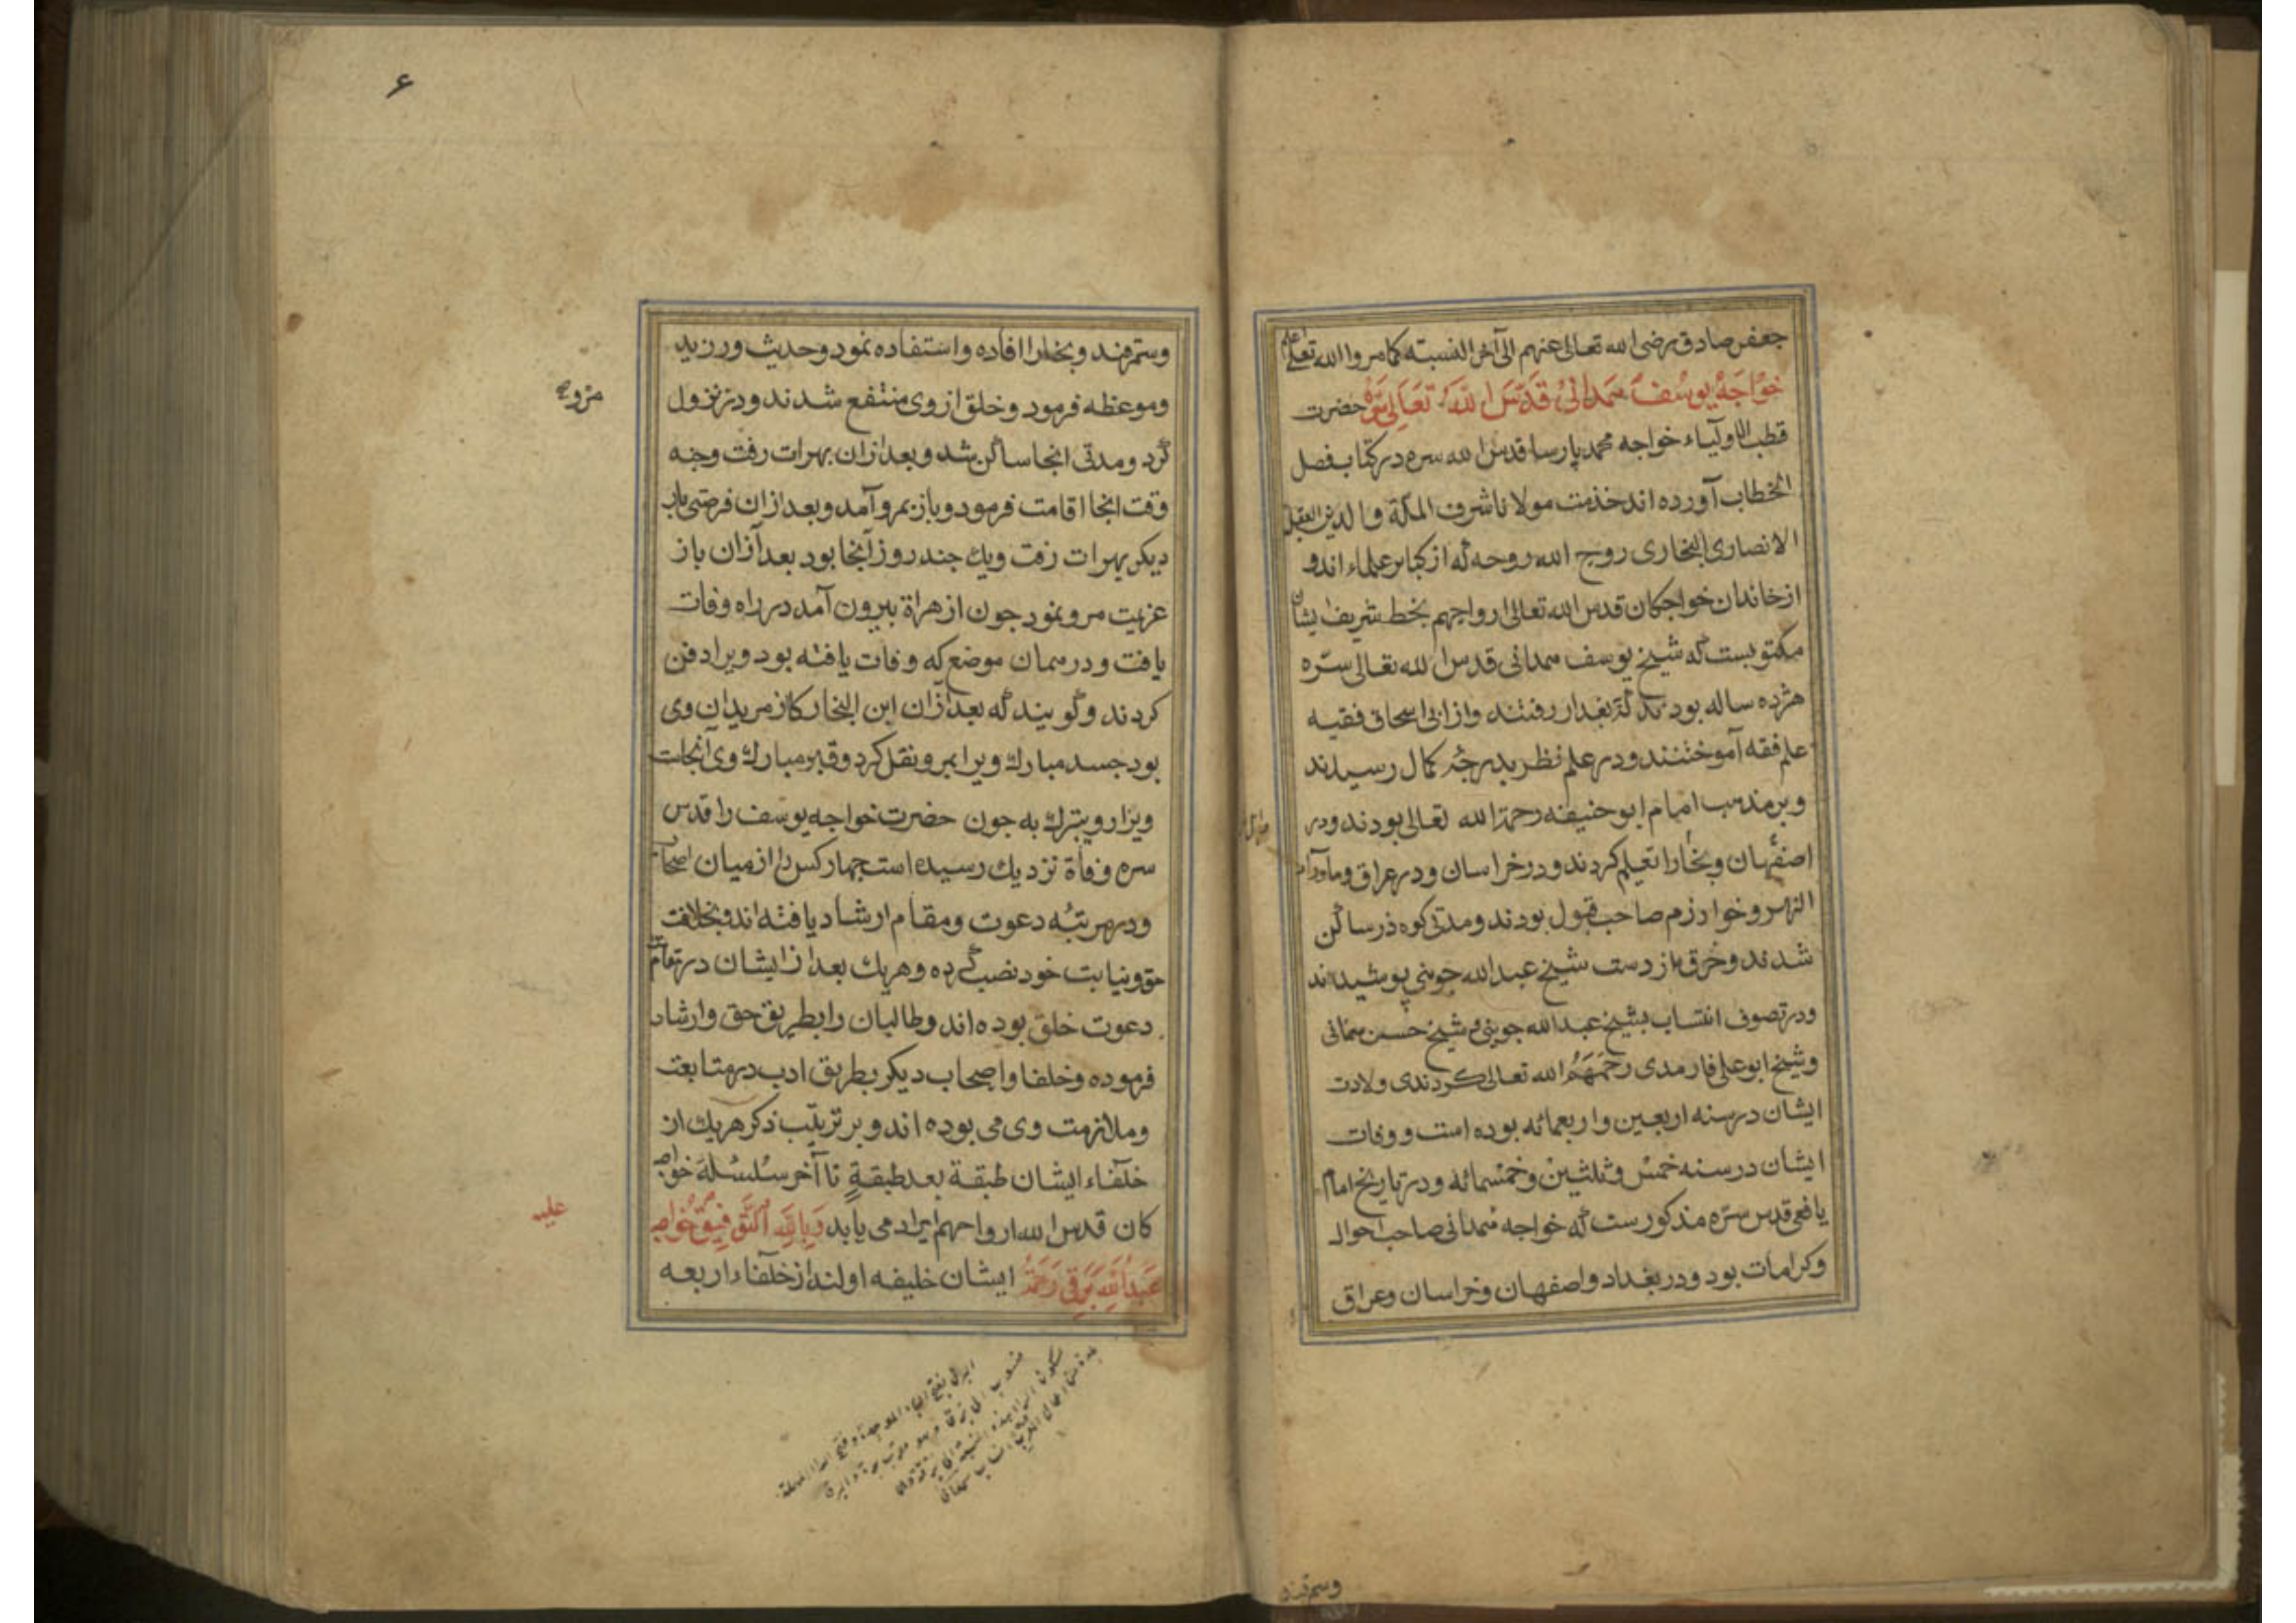 جعفر صادق رضی الله تعالی عنهم الی آخر النسبته کما مر والله تعالی اعلم
خواجه یوسف همدانی قدس الله تعالی سره حضرت
قطب الاولیاء خواجه محمد پارسا قدس الله سره در کتاب فصل
الخطاب آورده اند خدمت مولانا شرف الملة والدین العقیلی
الانصاری البخاری روح الله روحه که از کبار علماء اند و
از خاندان خواجکان قدس الله تعالی ارواحهم بخط شریف ایشان
مکتوبست که شیخ یوسف همدانی قدس الله تعالی سره
هژده ساله بودند که ببغداد رفتند و از ابی اسحاق فقیه
علم فقه آموختند و در علم نظر بدرجه کمال رسیدند
و بر مذهب امام ابو حنیفه رحمة الله تعالی بودند و در
اصفهان و بخارا تعیلم کردند و در خراسان و در عراق و ماوراء
النهر و خوارزم صاحب قبول بودند و مدتی کوه در ساکن
شدند و خرقه از دست شیخ عبدالله جوینی پوشیده اند
و در تصوف انتساب بشیخ عبدالله جوینی و شیخ حسن سمنانی
و شیخ ابو علی فارمدی رحمهم الله تعالی کردندی ولادت
ایشان در سنه اربعین و اربعمائه بوده است و وفات
ایشان در سنه خمس و ثلثین و خمسمائه و در تاریخ امام
یافعی قدس سره مذکورست که خواجه همدانی صاحب احوال
و کرامات بود و در بغداد و اصفهان و خراسان و عراق
وسمرقند
۶
وسمرقند و بخارا افاده و استفاده نمود و حدیث ورزید
و موعظه فرمود و خلق از وی منتفع شدند و در نزول
مرو
کرد و مدتی انجا ساکن شد و بعد ازان بهرات رفت وجه
وقت انجا اقامت فرمود و باز بمرو آمد و بعد ازان فرصتی بار
دیکر بهرات رفت ویک چند روز آنجا بود بعد آزان باز
عزیمت مرو نمود جون از هراة بیرون آمد در راه وفات
یافت و در همان موضع که وفات یافته بود ویرا دفن
کردند و کویند که بعد آزان ابن النجار که از مریدان وی
بود جسد مبارک ویرا بمرو نقل کرد و قبر مبارک وی آنجاست
ویزار ویتبرک به جون حضرت خواجه یوسف را قدس
سره وفاة نزدیک رسیده است جهار کس را از میان اصحاب
و در مرتبه دعوت و مقام ارشاد یافته اند و بخلافت
حق و نیابت خود نصب کرده و هر یک بعد از ایشان در مقام
دعوت خلق بوده اند و طالبان را بطریق حق و ارشاد
فرموده و خلفا و اصحاب دیکر بطریق ادب در متابعت
و ملازمت وی می بوده اند و بر ترتیب ذکر هر یک از
خلفاء ایشان طبقة بعد طبقة تا آخر سلسله خواجه
کان قدس الله ارواحهم ایراد می یابد وبالله التوفیق خواجه
علیه
عبدالله برقی رحمة ایشان خلیفه اولند از خلفاء اربعه